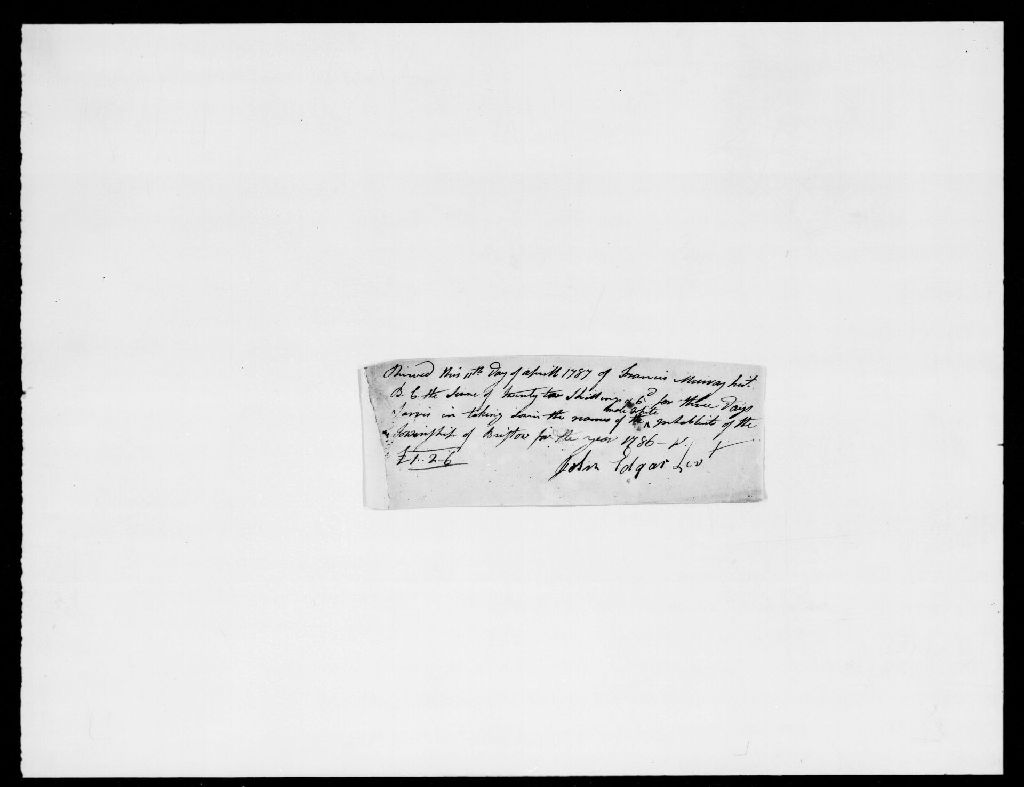 Received this 11th Day of aprill 1787 of Francis Murray Lieut.
B. C. the Sume of twenty two Shillings & 6d for three Days
Sarvis in taking the names of the male able Inhabitints of the
Township of Bristow for the year 1786
£1-2-6 John Edgar Liut